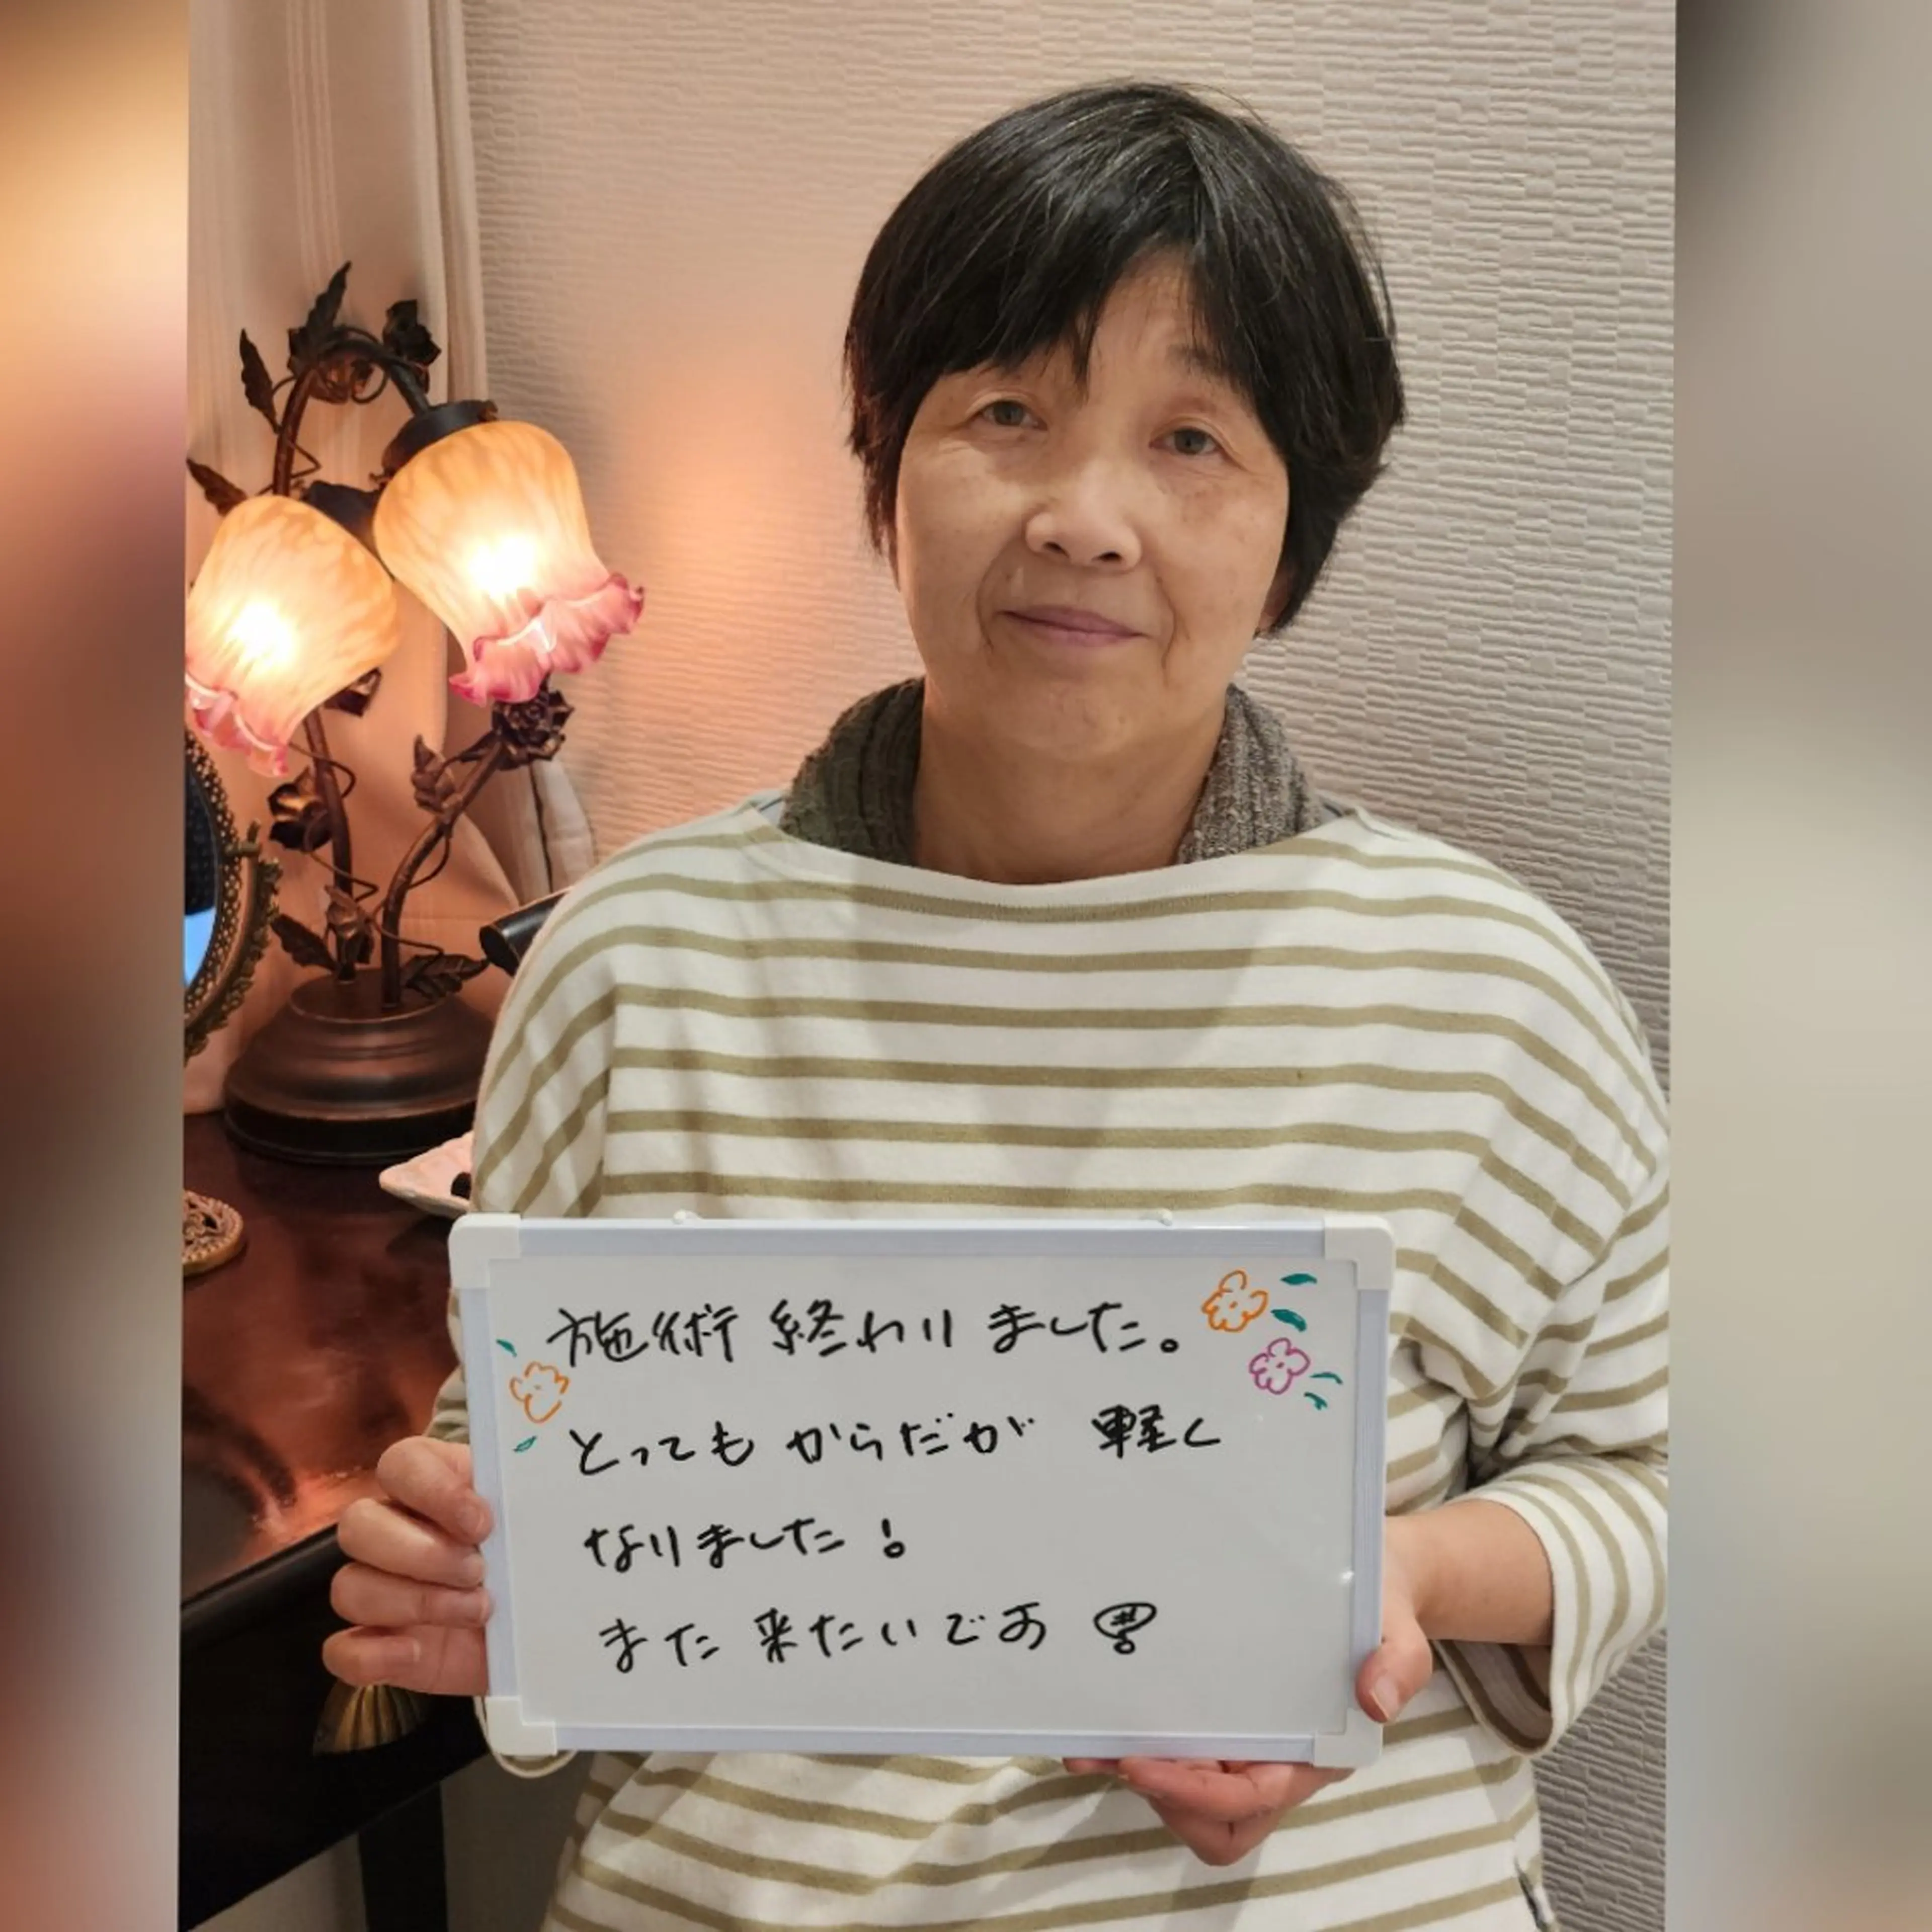 施術 終わりました。
とっても からだが 軽く
なりました！
また 来たいです